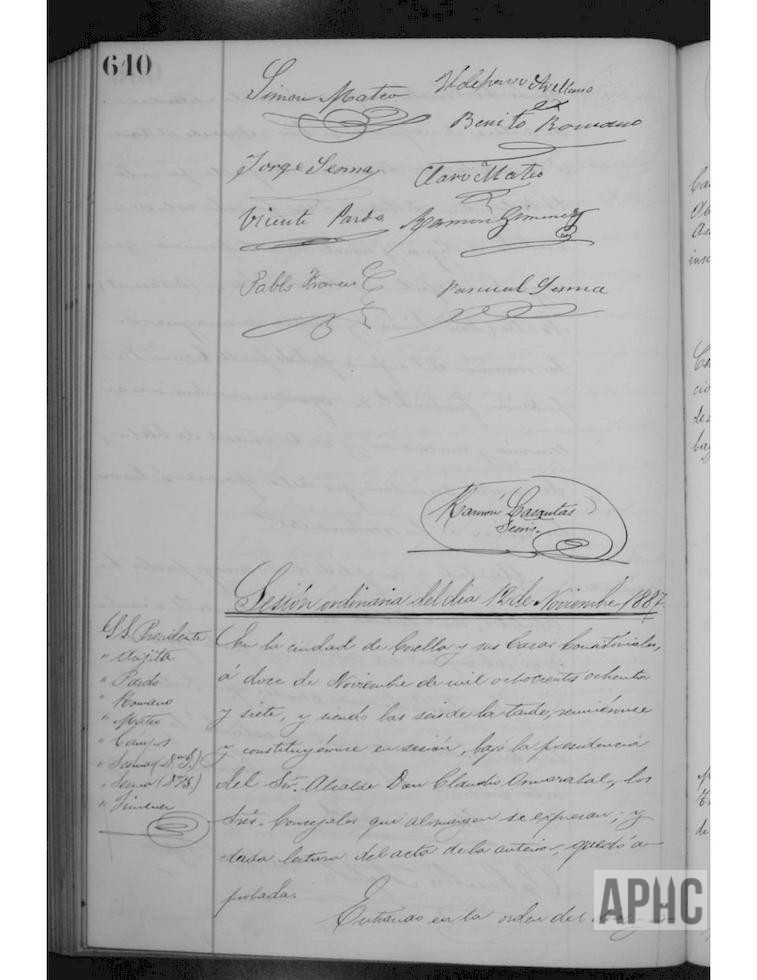 640
Simon Mateo
Ildefonso Arellano
Benito Romano
Jorge Sesma
Claro Mateo
Vicente Pardo
Ramón Gimenez
Pablo Frances
Pascual Sesma
Ramón
Secrio.
Sesión ordinaria del dia 12 de Noviembre 1887.
S.S. Presidente
" Argita
" Pardo
" Romano
" Mateo
" Campos
" Sesma (Dn J.)
" Sesma (Dn P.)
" Jimenez
En la ciudad de Corella y sus Casas Consistoriales,
á doce de Noviembre de mil ochocientos ochenta
y siete, y siendo las seis de la tarde, reuniéronse
y constituyéronse en sesión, bajo la presidencia
del Sr. Alcalde Don Claudio, los
Sres. Concejales que al margen se expresan; y
dada lectura del acta de la anterior, quedó a-
probada.
Entrando en la orden del
APHC